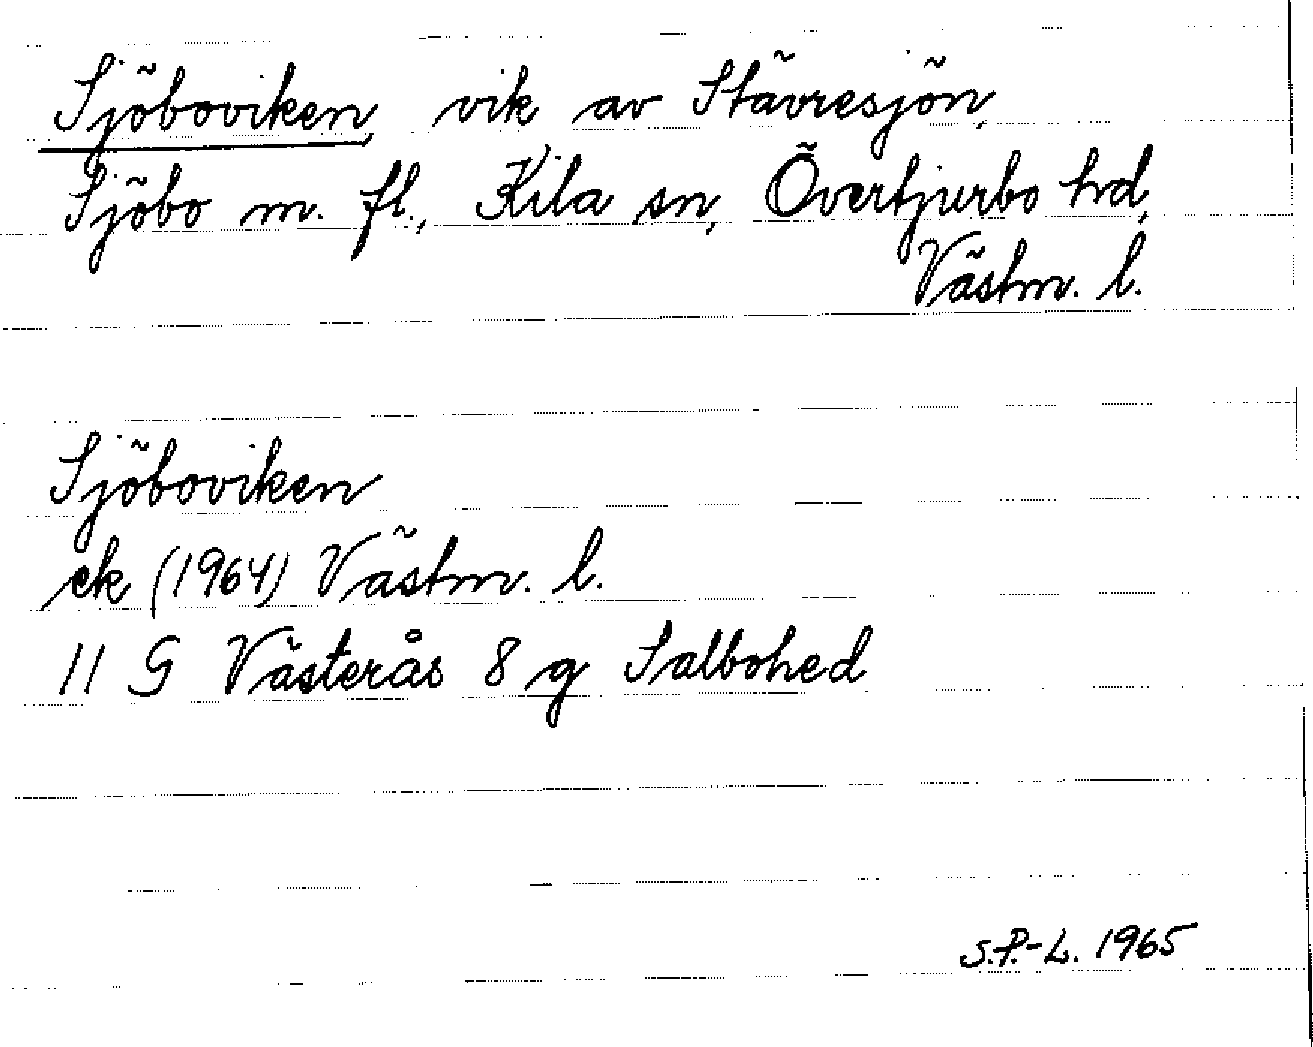 Sjöboviken, vik av Stävresjön,
Sjöbo m. fl., Kila sn, Övertjurbo hd,
Västm. l.
Sjöboviken
ek (1964) Västm. l.
11 G Västerås 8 g Salbohed
S.P.-L. 1965